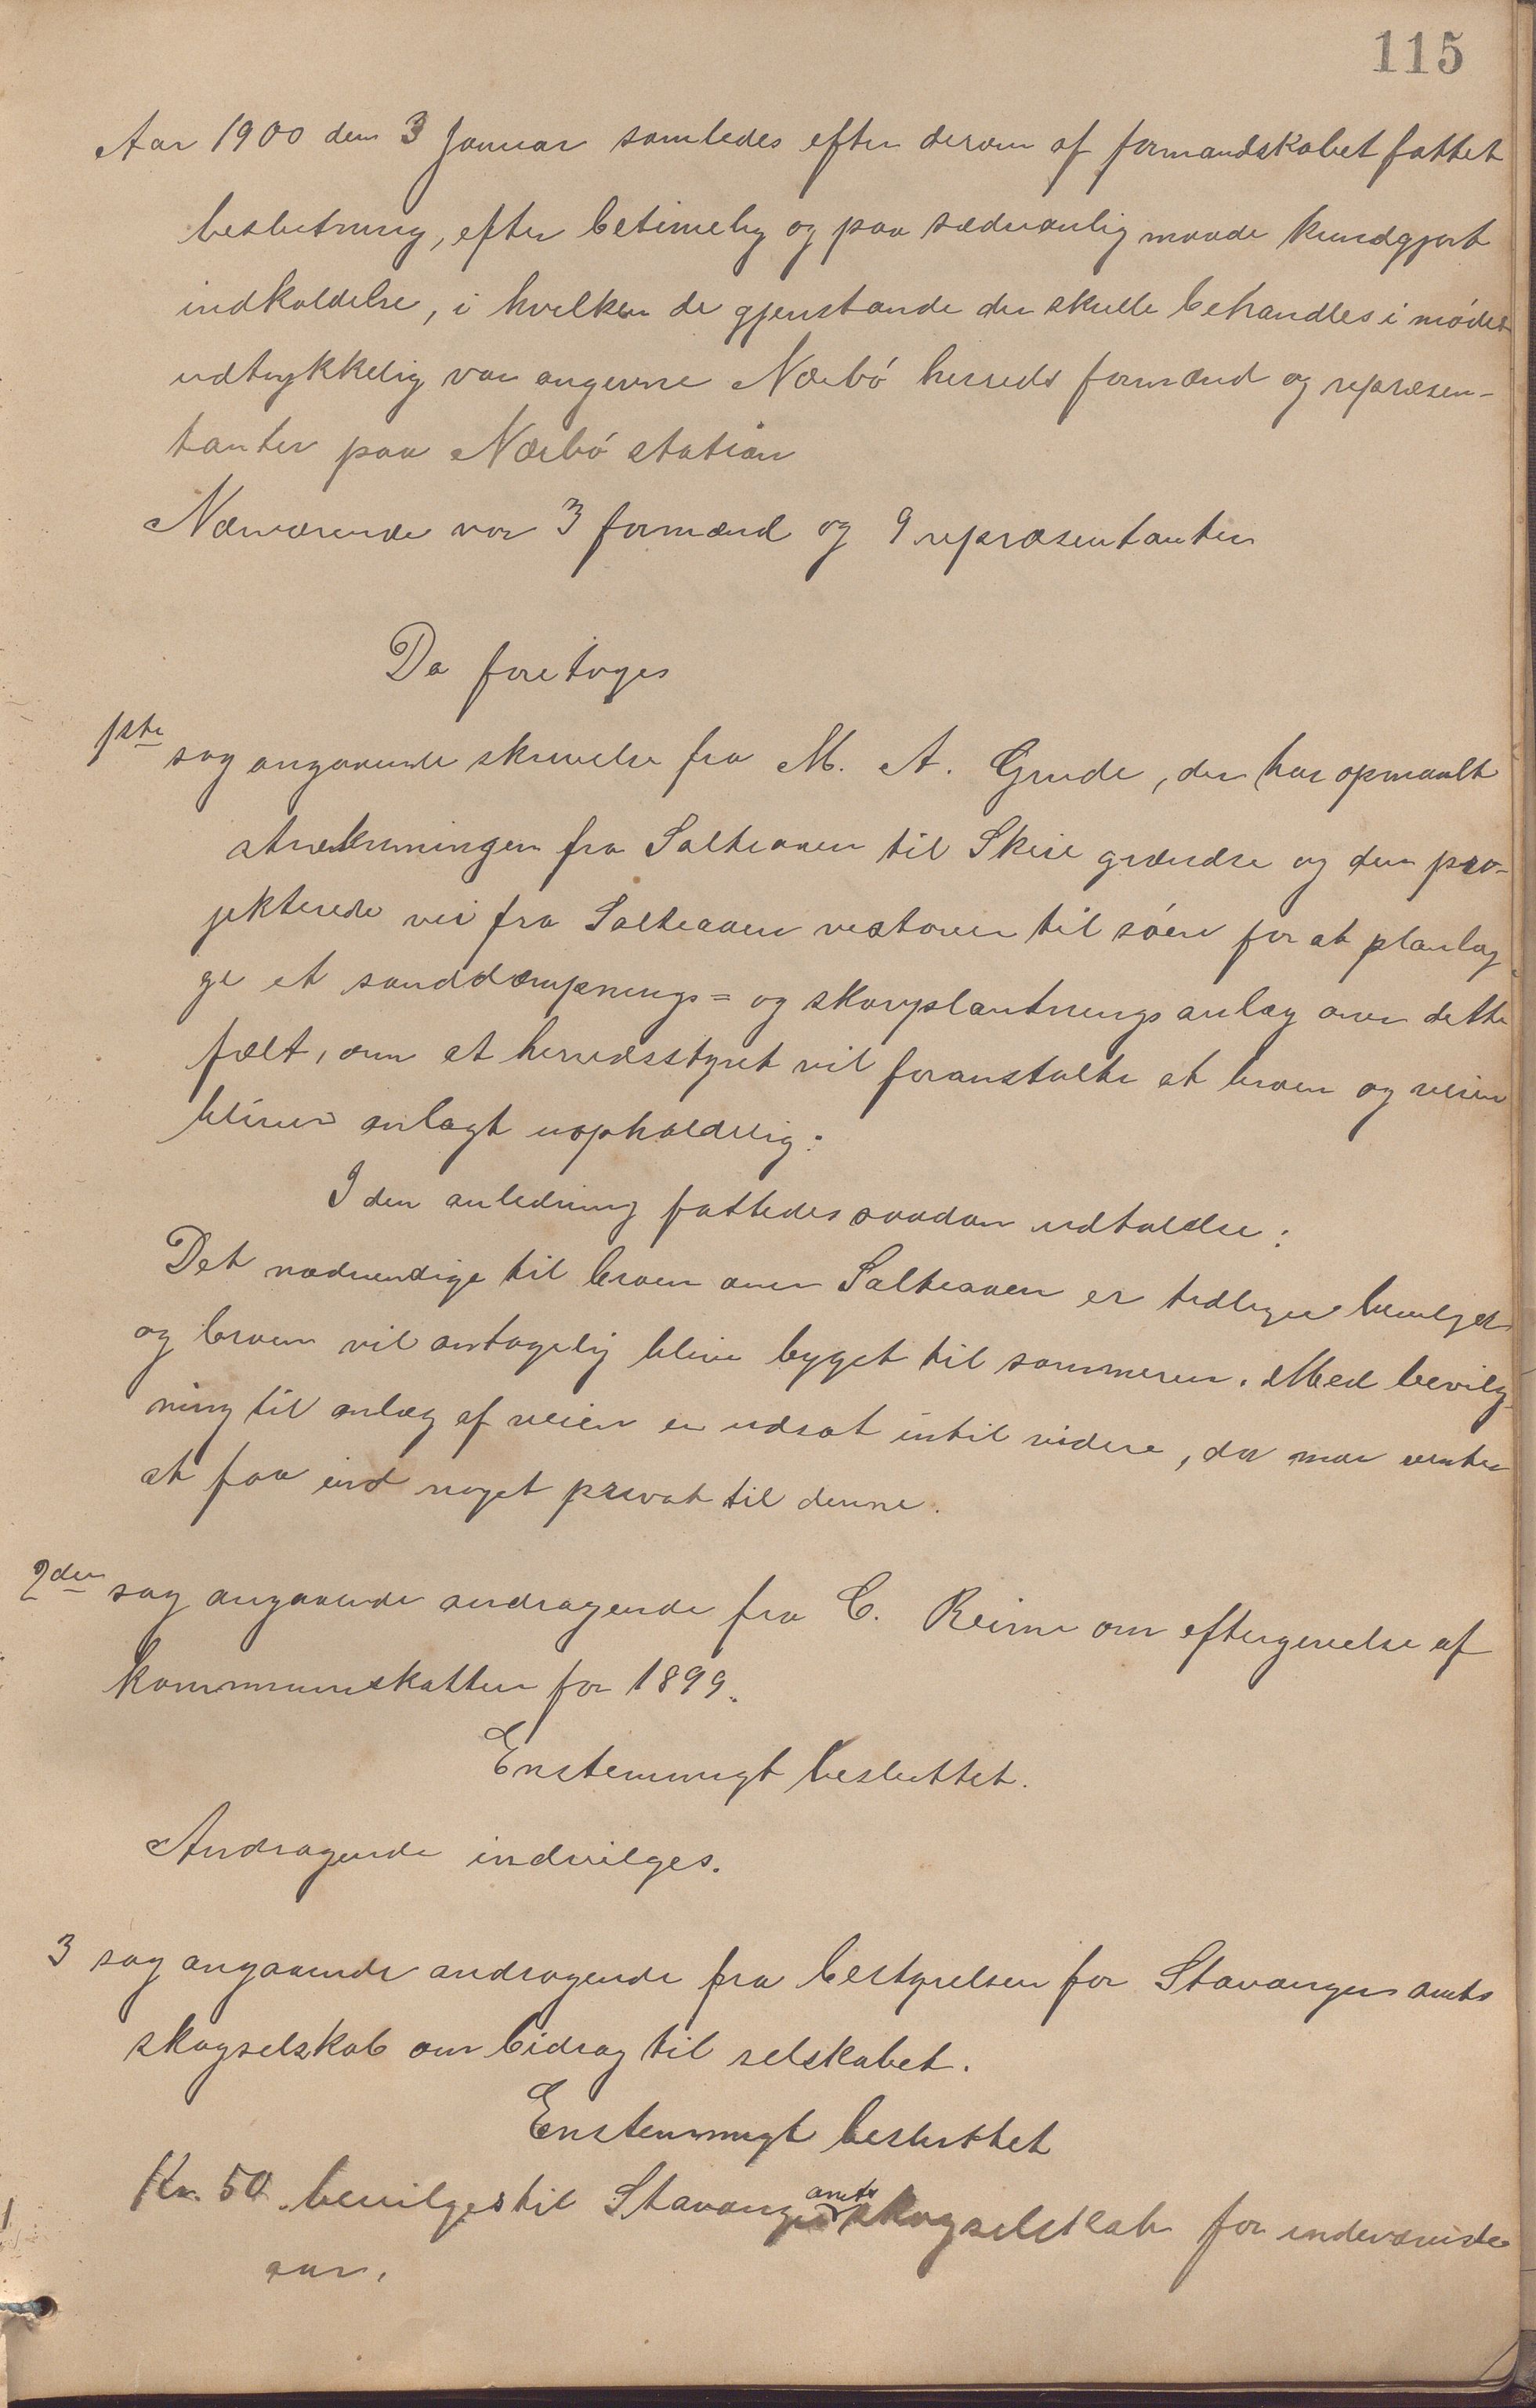 115
Aar 1900 den 3 Januar samledes efter derom af formandskabet fattet
beslutning, efter betimelig og paa sædvanlig maade kundgjort
indkaldelse, i hvilken de gjenstande der skulle behandles i mødet
udtrykkelig var angivne Nærbø herreds formænd og repræsen-
tanter paa Nærbø station
Nærværende var 3 formænd og 9 repræsentanter
Da foretoges
1ste sag angaaende skrivelse fra M. A. Grude, der har opmaalt
strækningen fra Salteaaen til Skeie grændse og den pro-
jekterede vei fra Salteaaen vestover til søen for at planlæg-
ge et sanddæmpnings= og skovplantnings anlæg over dette
felt, om at herredsstyret vil foranstalte at broen og veien
bliver anlagt uopholdelig:
I den anledning fattedes saadan udtalelse:
Det nødvendige til broen over Salteaaen er tidligere bevilget
og broen vil antagelig blive bygget til sommeren. Med bevilg-
ning til anlæg af veien er udsat indtil videre, da man venter
at faa ind noget privat til denne.
2den sag angaaende andragende fra C. Reime om eftergivelse af
kommuneskatten for 1899.
Enstemmigt besluttet.
Andragende indvilges.
3 sag angaaende andragende fra bestyrelsen for Stavanger amts
skogselskab om bidrag til selskabet.
Enstemmigt besluttet
Kr. 50 bevilges til Stavanger amts skogselskab for indeværende
aar.